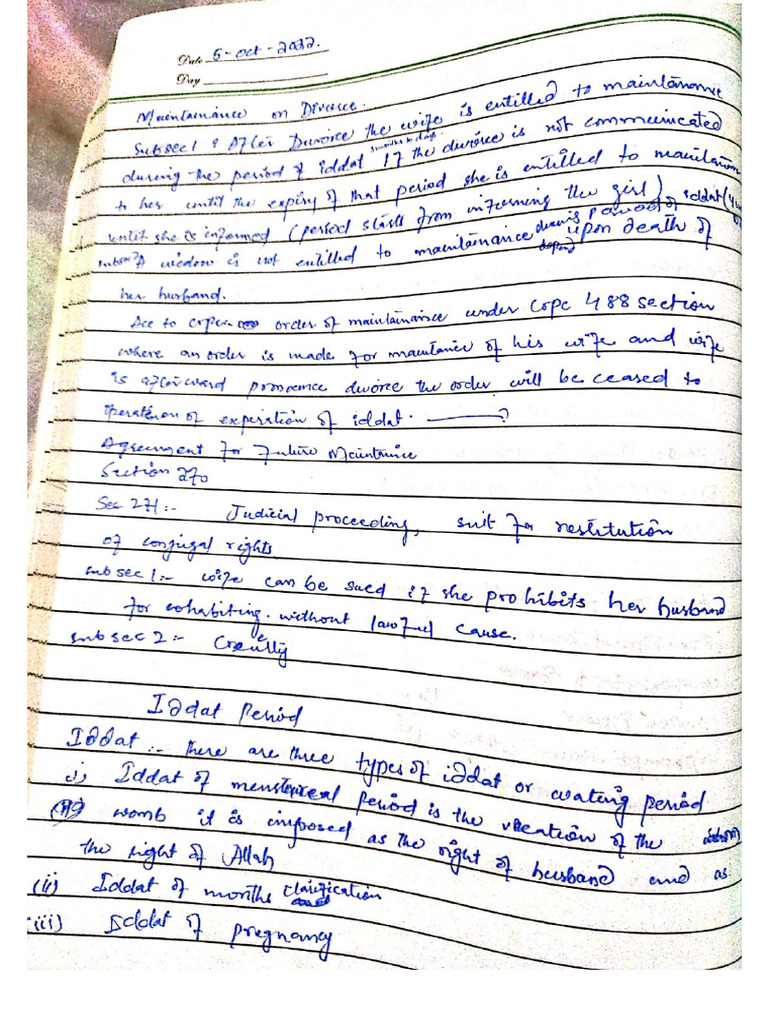 Date 5-oct-2022.
Day
Maintainance on Divorce.
Subsec 1: After Divorce the wife is entitled to maintainance
during the period of iddat If the divorce is not communicated
to her until the expiry of that period she is entitled to maintain
until she is informed (period starts from informing the girl)
subsec 2 A widow is not entitled to maintainance during period of iddat
depend upon death of
her husband.
Acc to order of maintainance under Crpc 488 section
where an order is made for maintance of his wife and wife
is afterward pronounce divorce the order will be ceased to
operation of experation of iddat.
Agreement for Future Maintaince
Section 270
Sec 271:- Judicial proceeding, suit for restitution
of conjugal rights.
subsec 1:- wife can be sued if she prohibits her husband
for cohabiting without lawful cause.
subsec 2:- Cruelty
Iddat Period
Iddat:- there are three types of iddat or waiting period
i) Iddat of menstrual period is the vacation of the
womb it is imposed as the right of husband and as
the right of Allah
(ii) Iddat of months clarification
(iii) Iddat of pregnancy